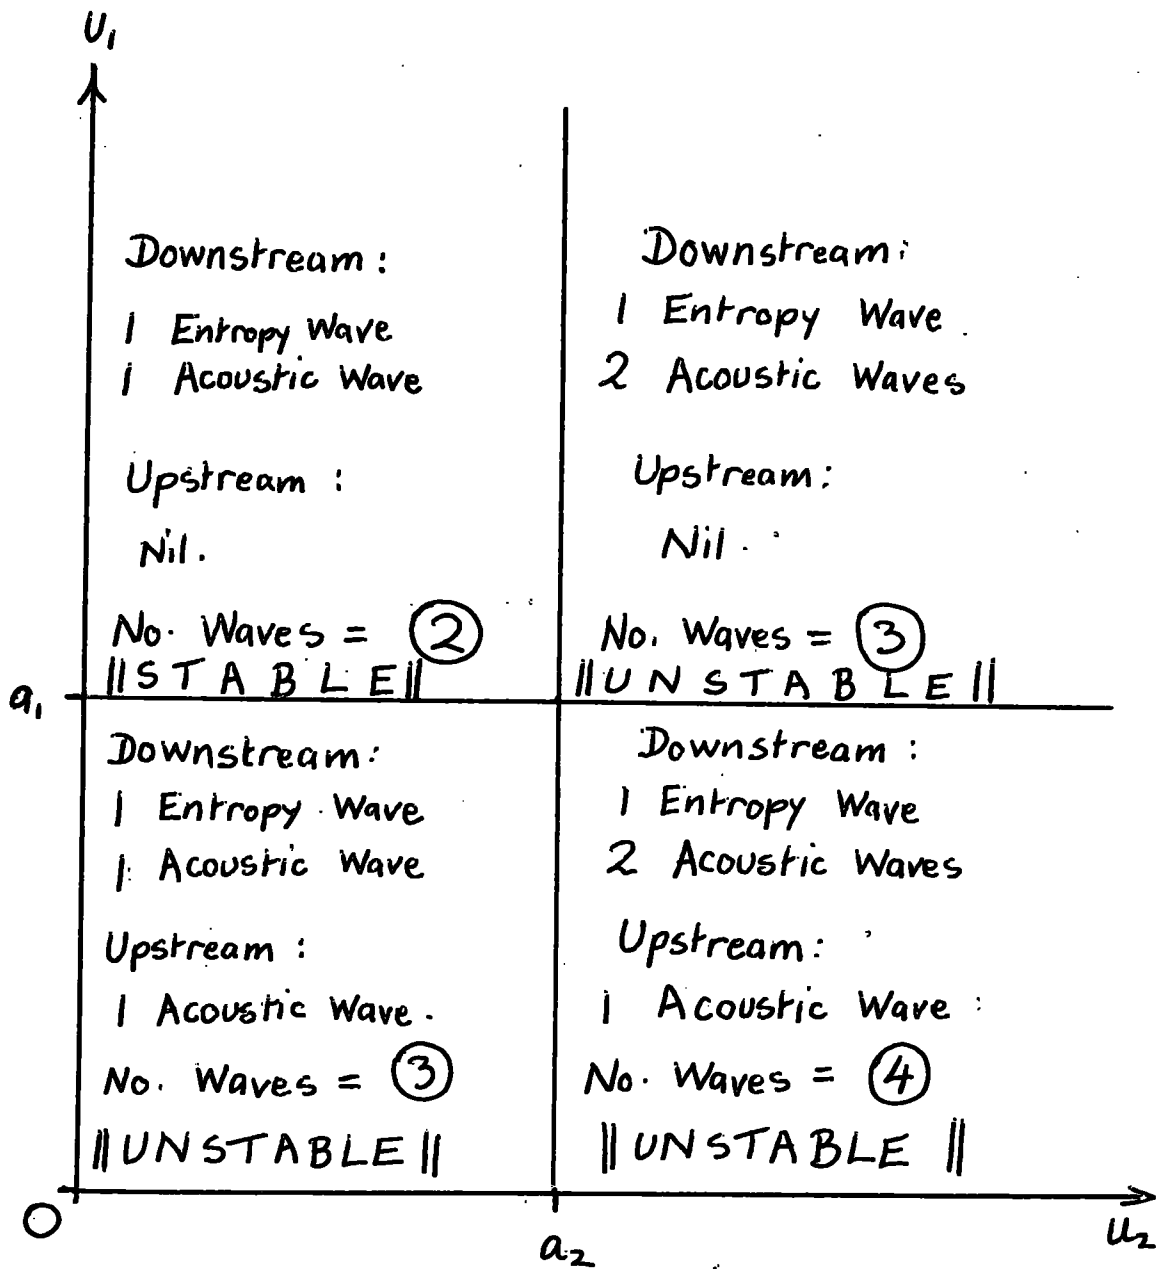 U₁
Downstream :
1 Entropy Wave
1 Acoustic Wave
Upstream :
Nil.
No. Waves = ②
||STABLE||
Downstream:
1 Entropy Wave
2 Acoustic Waves
Upstream:
Nil.
No. Waves = ③
||UNSTABLE||
a₁
Downstream:
1 Entropy Wave
1 Acoustic Wave
Upstream :
1 Acoustic Wave.
No. Waves = ③
||UNSTABLE||
Downstream :
1 Entropy Wave
2 Acoustic Waves
Upstream:
1 Acoustic Wave
No. Waves = ④
||UNSTABLE||
O
a₂
U₂